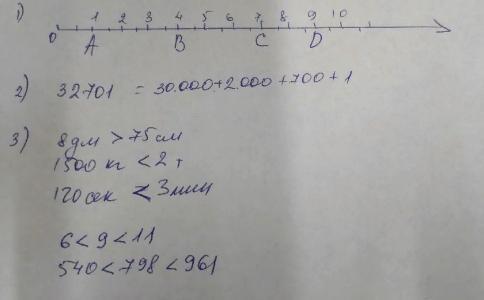 1) 1 2 3 4 5 6 7 8 9 10
0 A B C D
2) 32701 = 30.000+2.000+700+1
3) 8дм > 75см
1500 кг < 2 т
120сек < 3мин
6 < 9 < 11
540 < 798 < 961